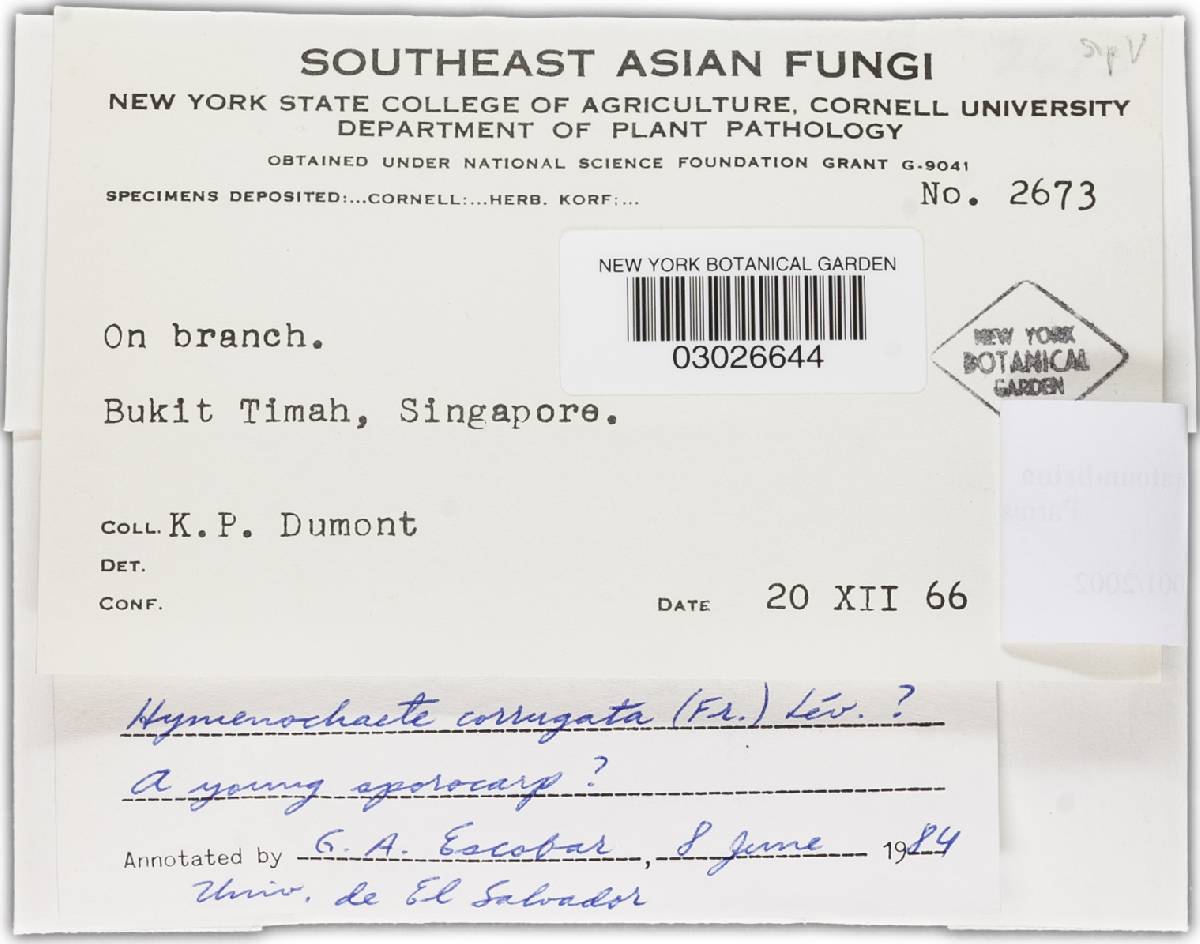 SOUTHEAST ASIAN FUNGI
NEW YORK STATE COLLEGE OF AGRICULTURE, CORNELL UNIVERSITY
DEPARTMENT OF PLANT PATHOLOGY
OBTAINED UNDER NATIONAL SCIENCE FOUNDATION GRANT G-9041
SPECIMENS DEPOSITED:...CORNELL:...HERB. KORF:...
No. 2673
NEW YORK BOTANICAL GARDEN
03026644
NEW YORK
BOTANICAL
GARDEN
On branch.
Bukit Timah, Singapore.
COLL. K.P. Dumont
DET.
CONF.
DATE 20 XII 66
Hymenochaete corrugata (Fr.) Lév. ?
A young sporocarp ?
Annotated by G. A. Escobar, 8 June 1984
Univ. de El Salvador